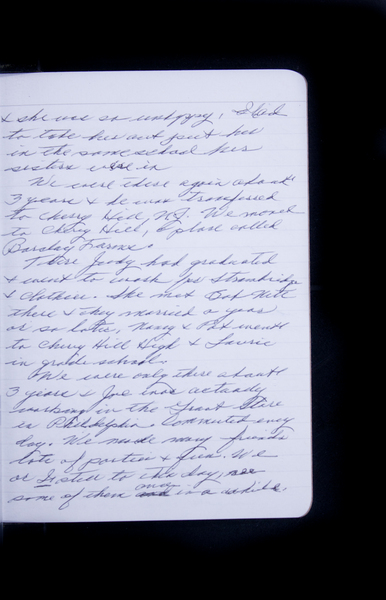 & she was so unhappy, I had
to take her out put her
in the same school her
sisters were in
We were there again about
3 years & he was transferred
to Cherry Hill, NJ. We moved
to Cherry Hill, a place called
Barclay Farms.
There Jody had graduated
& went to work for Strawbridge
& Clothier. She met Bob
there & they married a year
or so later, Nancy & Pat went
to Cherry Hill High & Laurie
in grade school.
We were only there about
3 years & Joe was actually
working in the Grant Store
in Philidelphia. Commuted every
day. We made many friends
lots of parties & fun. We
or I still to this day, see
some of them once in a while.